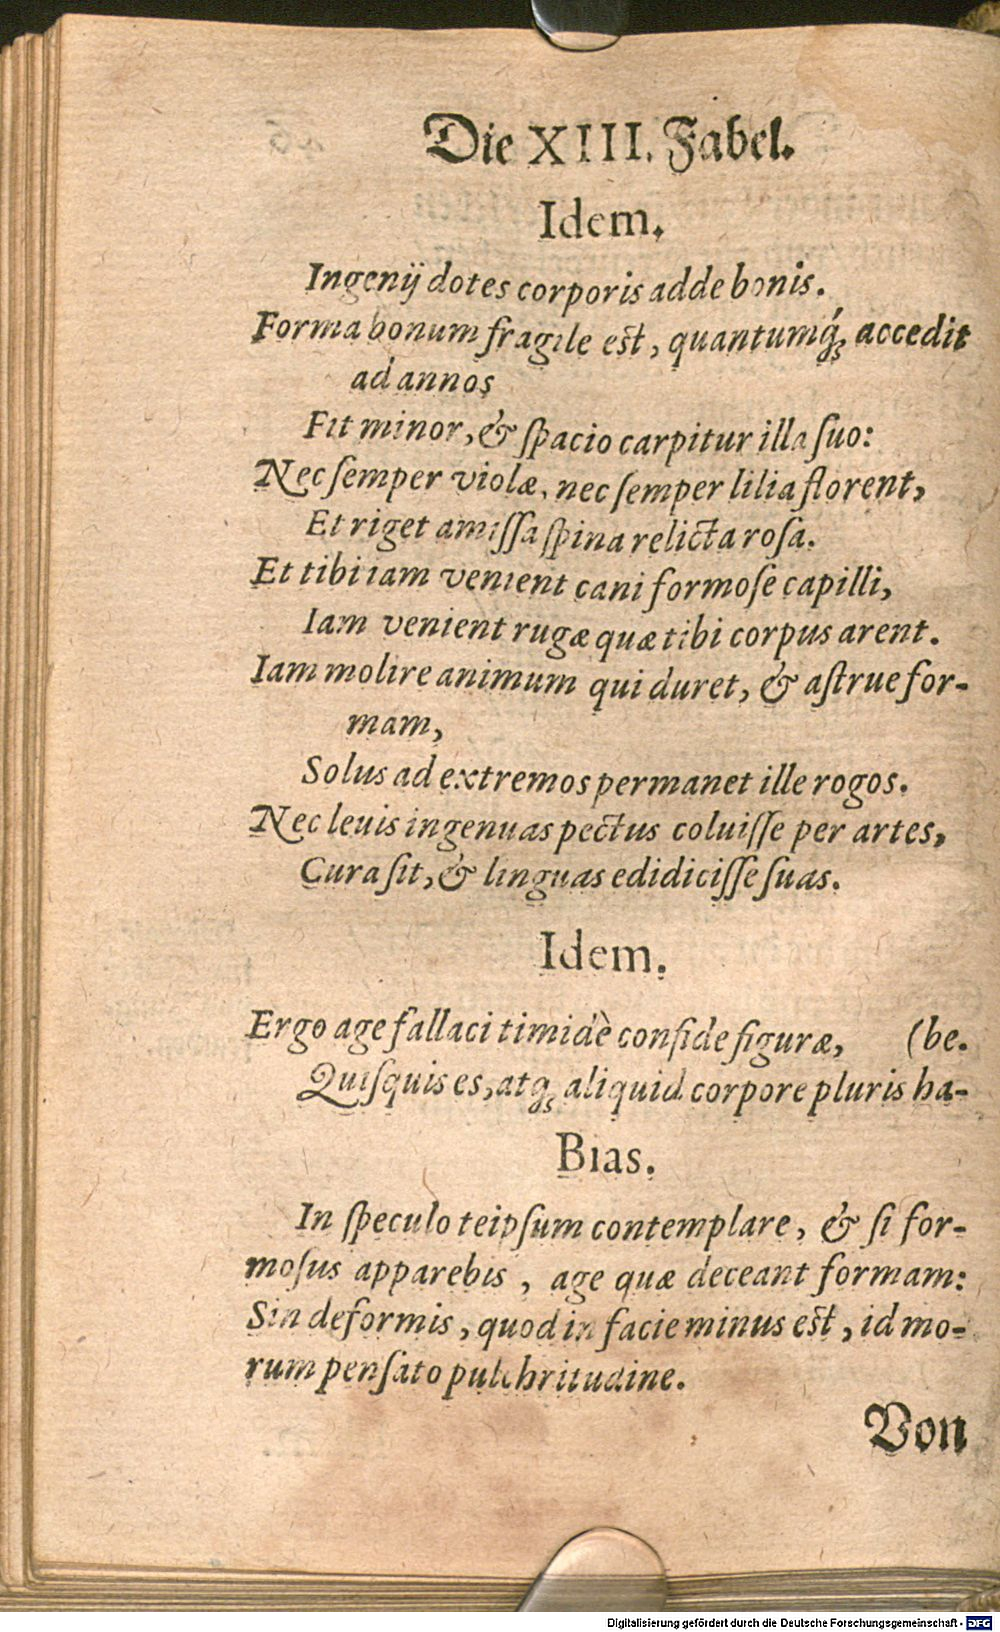 Die XIII. Fabel.
Idem.
Ingenij dotes corporis adde bonis.
Forma bonum fragile est, quantumq́; accedit
ad annos
Fit minor, & ſpacio carpitur illa ſuo:
Nec ſemper violæ, nec ſemper lilia florent,
Et riget amiſſa ſpina relicta roſa.
Et tibi iam venient cani formoſe capilli,
Iam venient rugæ quæ tibi corpus arent.
Iam molire animum qui duret, & aſtrue for-
mam,
Solus ad extremos permanet ille rogos.
Nec leuis ingenuas pectus coluiſſe per artes,
Cura ſit, & linguas edidiciſſe ſuas.
Idem.
Ergo age fallaci timidè confide figuræ, (be.
Quiſquis es, atq; aliquid corpore pluris ha-
Bias.
In ſpeculo teipſum contemplare, & ſi for-
moſus apparebis, age quæ deceant formam:
Sin deformis, quod in facie minus est, id mo-
rum penſato pulchritudine.
Von
Digitalisierung gefördert durch die Deutsche Forschungsgemeinschaft - DFG